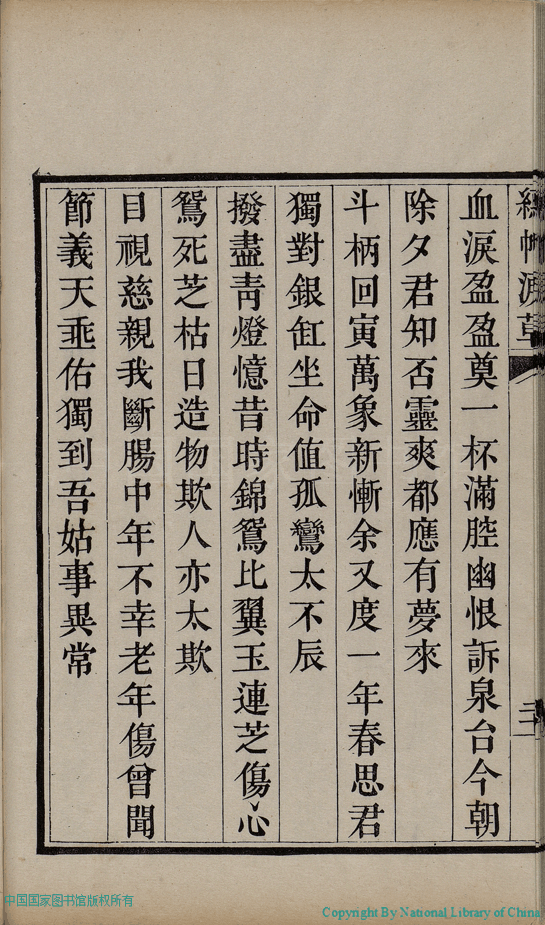 淚草
血淚盈盈奠一杯滿腔幽恨訴泉台今朝
除夕君知否靈爽都應有夢來
斗柄回寅萬象新慚余又度一年春思君
獨對銀缸坐命值孤鸞太不辰
撥盡青燈憶昔時錦鴛比翼玉連芝傷心
鴛死芝枯日造物欺人亦太欺
目視慈親我斷腸中年不幸老年傷曾聞
節義天垂佑獨到吾姑事異常
中国国家图书馆版权所有
Copyright By National Library of China